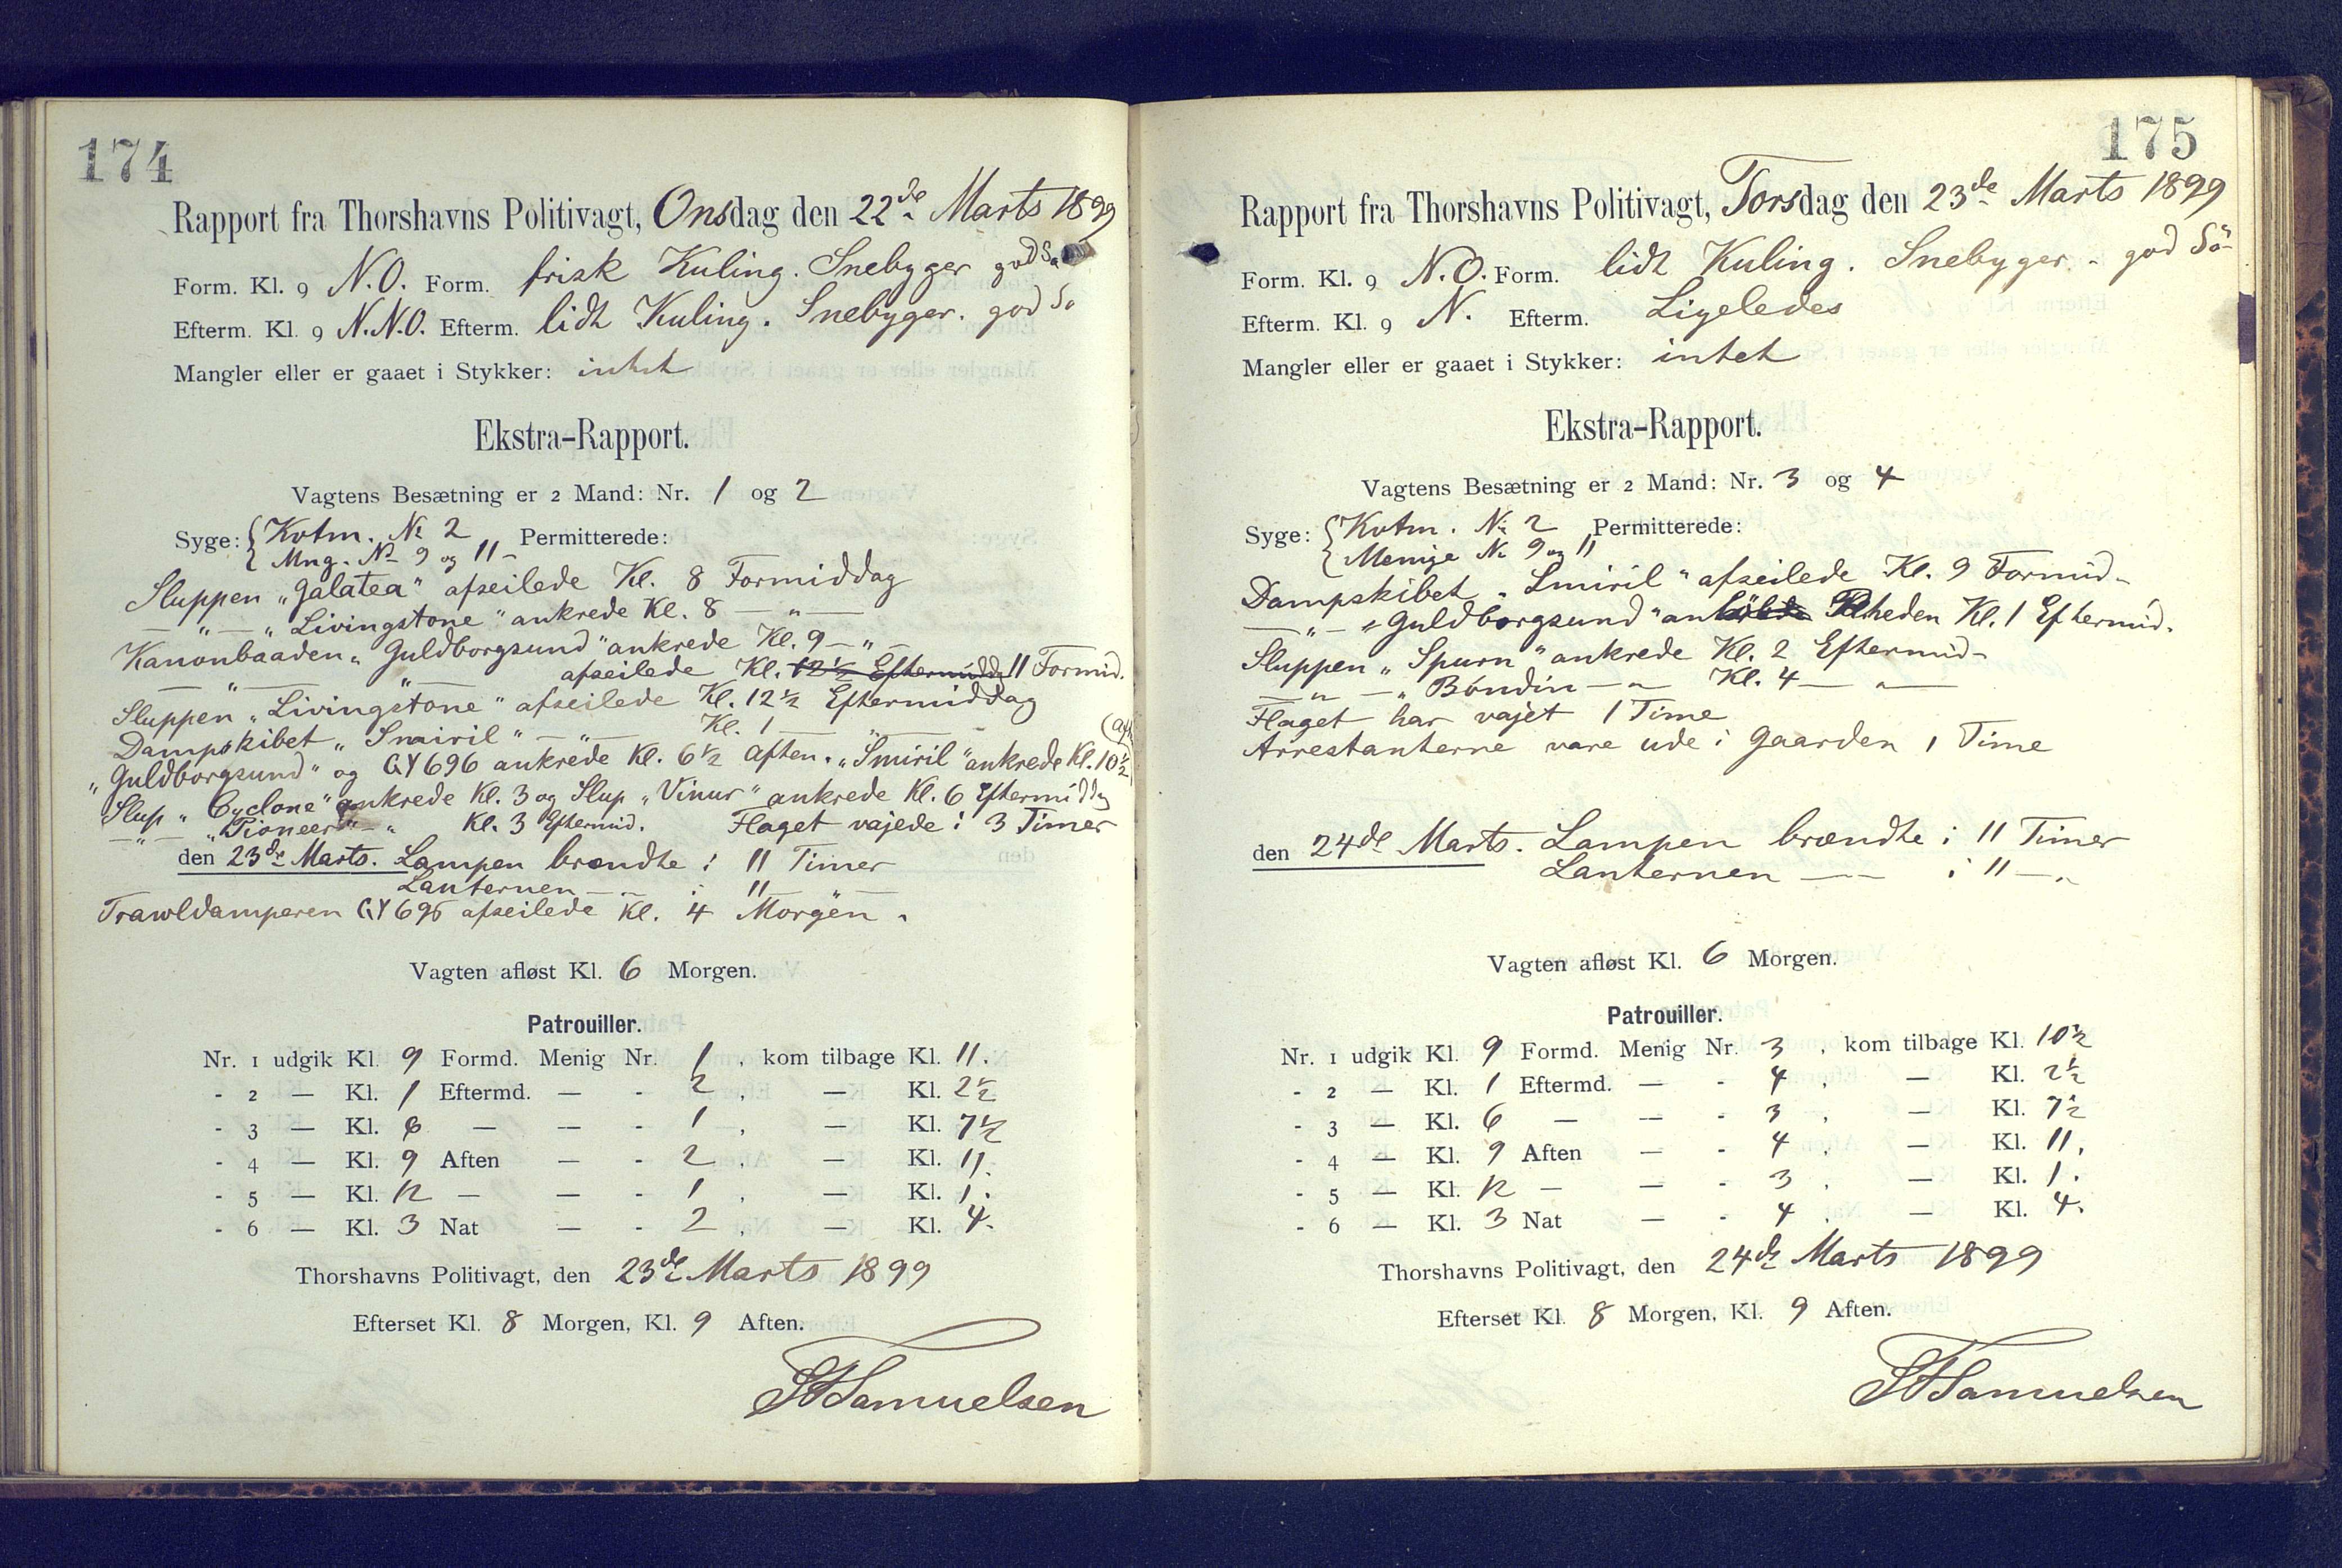 174
Rapport fra Thorshavns Politivagt, Onsdag den 22de Marts 1899
Form. Kl. 9 N.O. Form. frisk Kuling. Snebyger god Sø
Efterm. Kl. 9 N.N.O. Efterm. lidt Kuling. Snebyger. god Sø
Mangler eller er gaaet i Stykker: intet
Ekstra-Rapport.
Vagtens Besætning er 2 Mand: Nr. 1 og 2
Syge: { Kvtm. № 2 Permitterede:
Mng. № 9 og 11 -
Sluppen „Galatea" afseilede Kl. 8 Formiddag
— „ — „Livingstone" ankrede Kl. 8 — „ —
Kanonbaaden „Guldborgsund" ankrede Kl. 9 — „ —
— „ — „ — afseilede Kl. 12½ Eftermiddg 11 Formid.
Sluppen „Livingstone" afseilede Kl. 12½ Eftermiddag
Dampskibet „Smiril" — „ — Kl. 1 — „ — (Aft.
„Guldborgsund" og GY 696 ankrede Kl. 6½ Aften. „Smiril" ankrede Kl. 10½
Slup „Cyclone" ankrede Kl. 3 og Slup „Vinur" ankrede Kl. 6 Eftermiddg
— „ — „Pioneer" — „ Kl. 3 Eftermid. Flaget vajede i 3 Timer
den 23de Marts. Lampen brændte i 11 Timer
Lanternen — „ — i 11 — „ —
Trawldamperen GY 696 afseilede Kl. 4 Morgen.
Vagten afløst Kl. 6 Morgen.
Patrouiller.
Nr. 1 udgik Kl. 9 Formd. Menig Nr. 1, kom tilbage Kl. 11.
- 2 — Kl. 1 Eftermd. — - 2, — Kl. 2½
- 3 — Kl. 6 — — - 1, — Kl. 7½
- 4 — Kl. 9 Aften — - 2, — Kl. 11.
- 5 — Kl. 12 — — - 1, — Kl. 1.
- 6 — Kl. 3 Nat — - 2, — Kl. 4.
Thorshavns Politivagt, den 23de Marts 1899
Efterset Kl. 8 Morgen, Kl. 9 Aften.
Samuelsen
175
Rapport fra Thorshavns Politivagt, Torsdag den 23de Marts 1899
Form. Kl. 9 N.O. Form. lidt Kuling. Snebyger - god Sö
Efterm. Kl. 9 N. Efterm. Ligeledes
Mangler eller er gaaet i Stykker: intet
Ekstra-Rapport.
Vagtens Besætning er 2 Mand: Nr. 3 og 4
Syge: { Kvtm. № 2 Permitterede:
Menige № 9 og 11
Dampskibet „Smiril" afseilede Kl. 9 Formid-
— „ — „Guldborgsund" Rheden Kl. 1 Eftermid.
Sluppen „Spurn" ankrede Kl. 2 Eftermid-
— „ — „Bóndin — „ Kl. 4 — „ —
Flaget har vajet 1 Time
Arrestanterne vare ude i Gaarden 1 Time
den 24de Marts. Lampen brændte i 11 Timer
Lanternen — — i 11 — „
Vagten afløst Kl. 6 Morgen.
Patrouiller.
Nr. 1 udgik Kl. 9 Formd. Menig Nr. 3, kom tilbage Kl. 10½
- 2 — Kl. 1 Eftermd. — - 4, — Kl. 2½
- 3 — Kl. 6 — — - 3, — Kl. 7½
- 4 — Kl. 9 Aften — - 4, — Kl. 11.
- 5 — Kl. 12 — — - 3, — Kl. 1.
- 6 — Kl. 3 Nat — - 4, — Kl. 4.
Thorshavns Politivagt, den 24de Marts 1899
Efterset Kl. 8 Morgen, Kl. 9 Aften.
Samuelsen